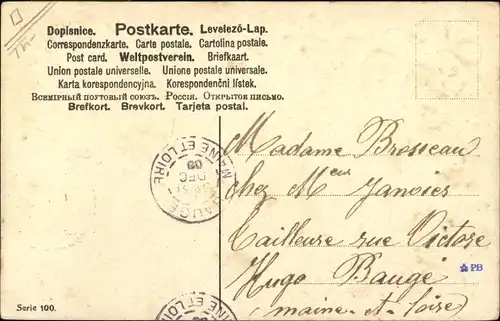 Dopisnice. Postkarte. Levelező-Lap.
Correspondenzkarte. Carte postale. Cartolina postale.
Post card. Weltpostverein. Briefkaart.
Union postale universelle. Unione postale universale.
Karta korespondencyjna. Korespondenční lístek.
Всемірный почтовый союзъ. Россія. Открытое письмо.
Brefkort. Brevkort. Tarjeta postal.
MAINE ET LOIRE
DEC
05
BAUGÉ
Madame Brosseau
chez Meur Janvies
Tailleure rue Victore
Hugo Baugé
(maine-et-loire)
PB
Serie 100.
NE ET LOIRE